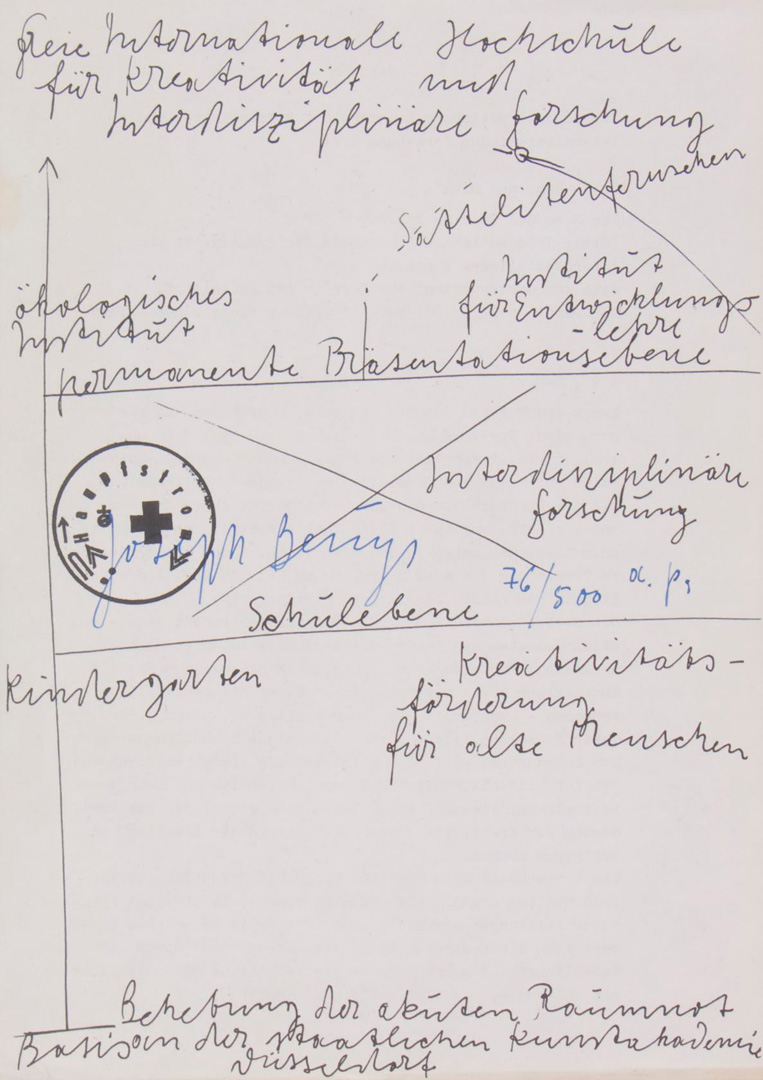 freie Internationale Hochschule
für Kreativität und
Interdisziplinäre Forschung
Sattelitenfernsehen
Institut
für Entwicklungs
-lehre
ökologisches
Institut
permanente Präsentationsebene
Hauptstrom
Interdisziplinäre
Forschung
Joseph Beuys
76/500 a. p.
Schulebene
Kindergarten
Kreativitäts-
förderung
für alte Menschen
Behebung der akuten Raumnot
Basis an der staatlichen Kunstakademie
Düsseldorf